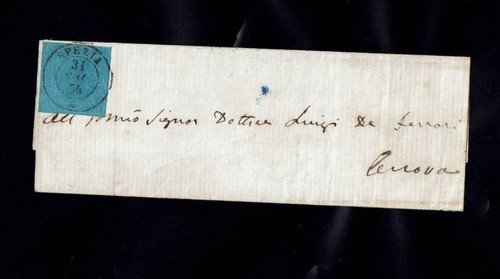 SPEZIA
31
54
All' Signor Dottore Luigi De Ferrari
Genova